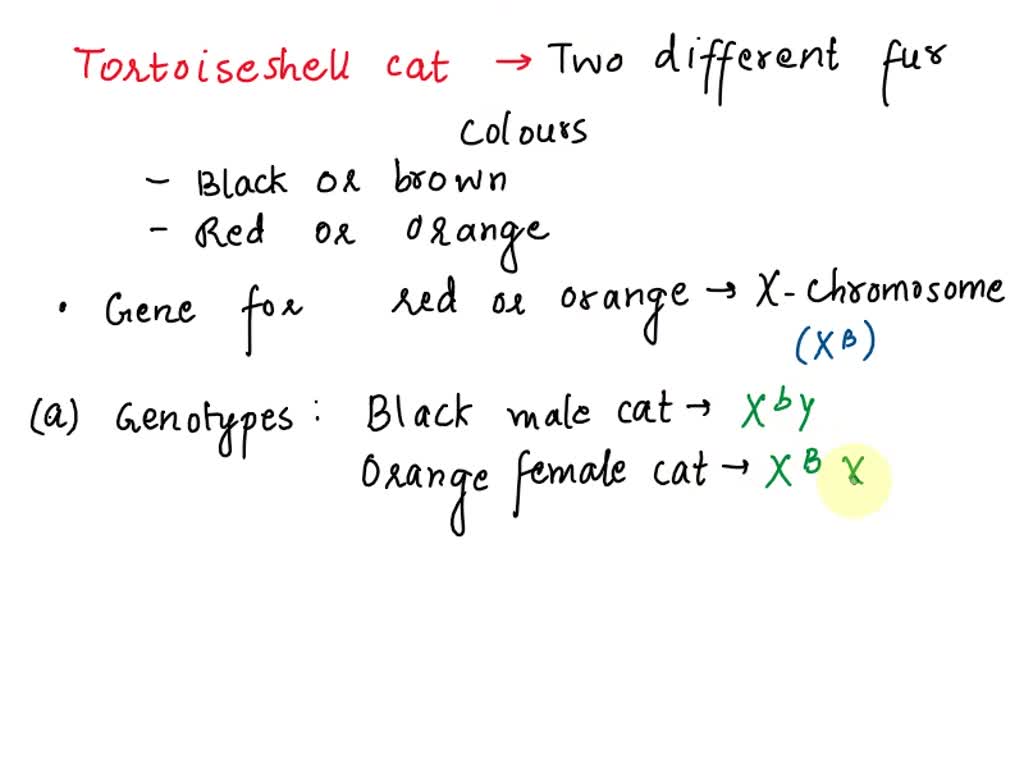 Tortoiseshell cat → Two different fur
colours
- Black or brown
- Red or orange
• Gene for red or orange → X-chromosome
(Xᴮ)
(a) Genotypes: Black male cat → Xᵇy
Orange female cat → Xᴮ X